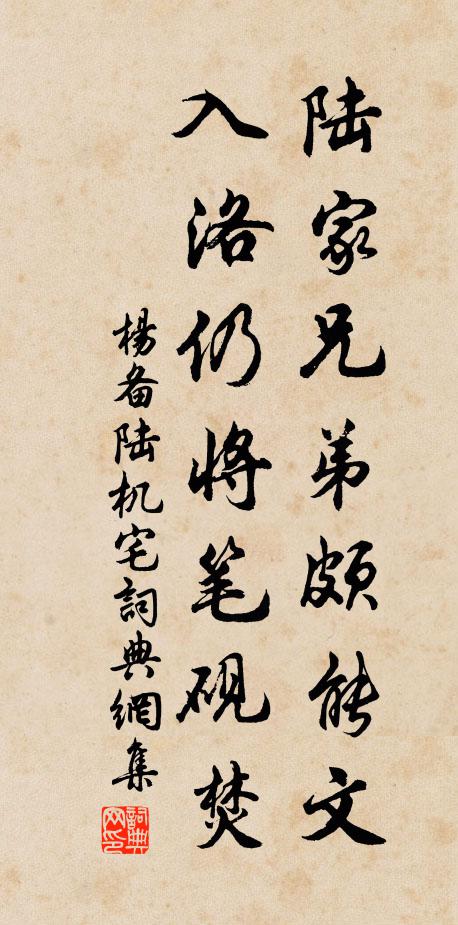 陆家兄弟颇能文
入洛仍将笔砚焚
楊备陆机宅詞典網集
詞典网印